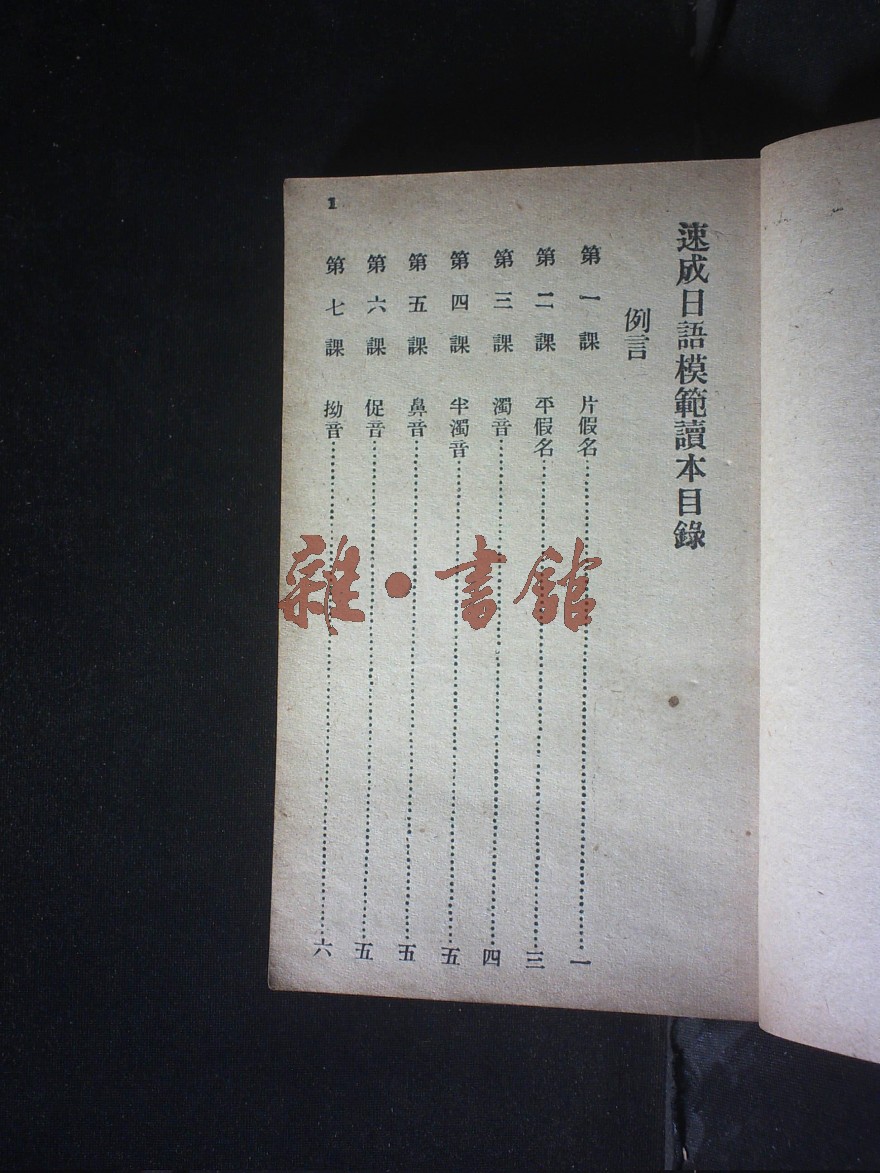 速成日語模範讀本目錄
例言
第一課 片假名……一
第二課 平假名……三
第三課 濁音……四
第四課 半濁音……五
第五課 鼻音……五
第六課 促音……五
第七課 拗音……六
1
雜·書館